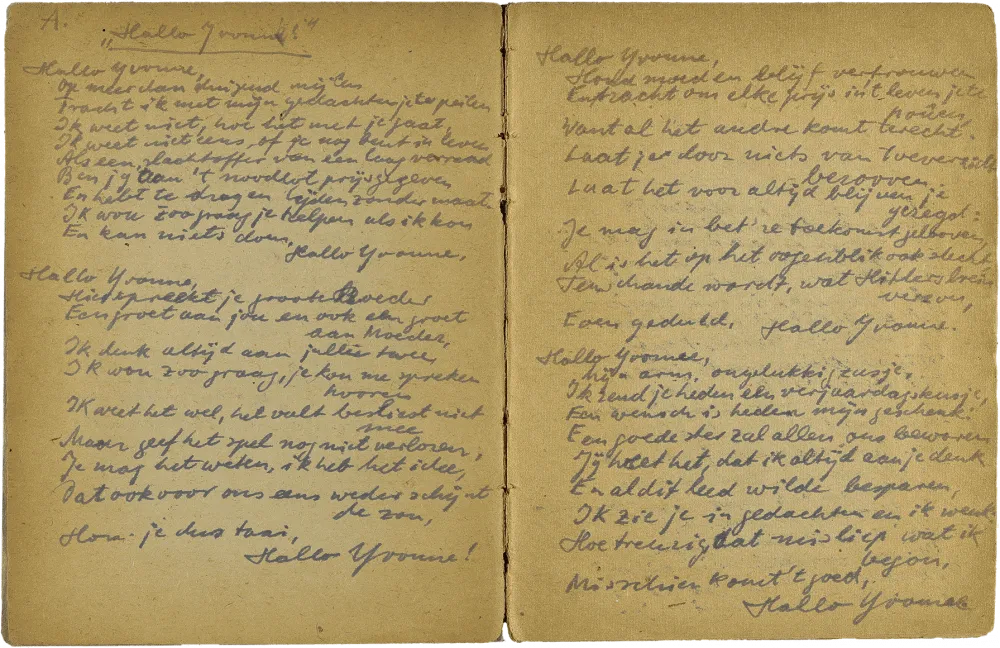 A.
„Hallo Yvonne!"
Hallo Yvonne,
Op meer dan duizend mijlen
Tracht ik met mijn gedachten je te peilen
Ik weet niet, hoe het met je gaat,
Ik weet niet eens, of je nog bent in leven
Als een slachtoffer van een laag verraad
Ben jij aan 't noodlot prijsgegeven
En hebt te dragen lijden zonder maat.
Ik wou zoo graag je helpen als ik kon
En kan niets doen,
Hallo Yvonne.
Hallo Yvonne,
Hier spreekt je groote Broeder
Een groet aan jou en ook een groet
aan Moeder,
Ik denk altijd aan jullie twee
Ik wou zoo graag, je kon me spreken
hooren
Ik weet het wel, het valt beslist niet
mee
Maar geef het spel nog niet verloren,
Je mag het weten, ik heb het idee,
Dat ook voor ons eens weder schijnt
de zon,
Hou je dus taai,
Hallo Yvonne!
Hallo Yvonne,
Houd moed en blijf vertrouwen
En tracht om elke prijs in 't leven je te
houên,
Want al het andre komt terecht.
Laat je door niets van toeverzicht
berooven
Laat het voor altijd blijven je
gezegd:
Je mag in bet're toekomst gelooven,
Al is het op het oogenblik ook slecht
Ten schande wordt, wat Hitlers brein
verzon,
Even geduld, Hallo Yvonne.
Hallo Yvonne,
Mijn arm, ongelukkig zusje,
Ik zend je heden een verjaardagskusje,
Een wensch is heden mijn geschenk:
Een goede ster zal allen ons bewaren
Jij weet het, dat ik altijd aan je denk
En al dit leed wilde besparen,
Ik zie je in gedachten en ik wenk
Hoe treurig dat misliep wat ik
begon,
Misschien komt 't goed,
Hallo Yvonne